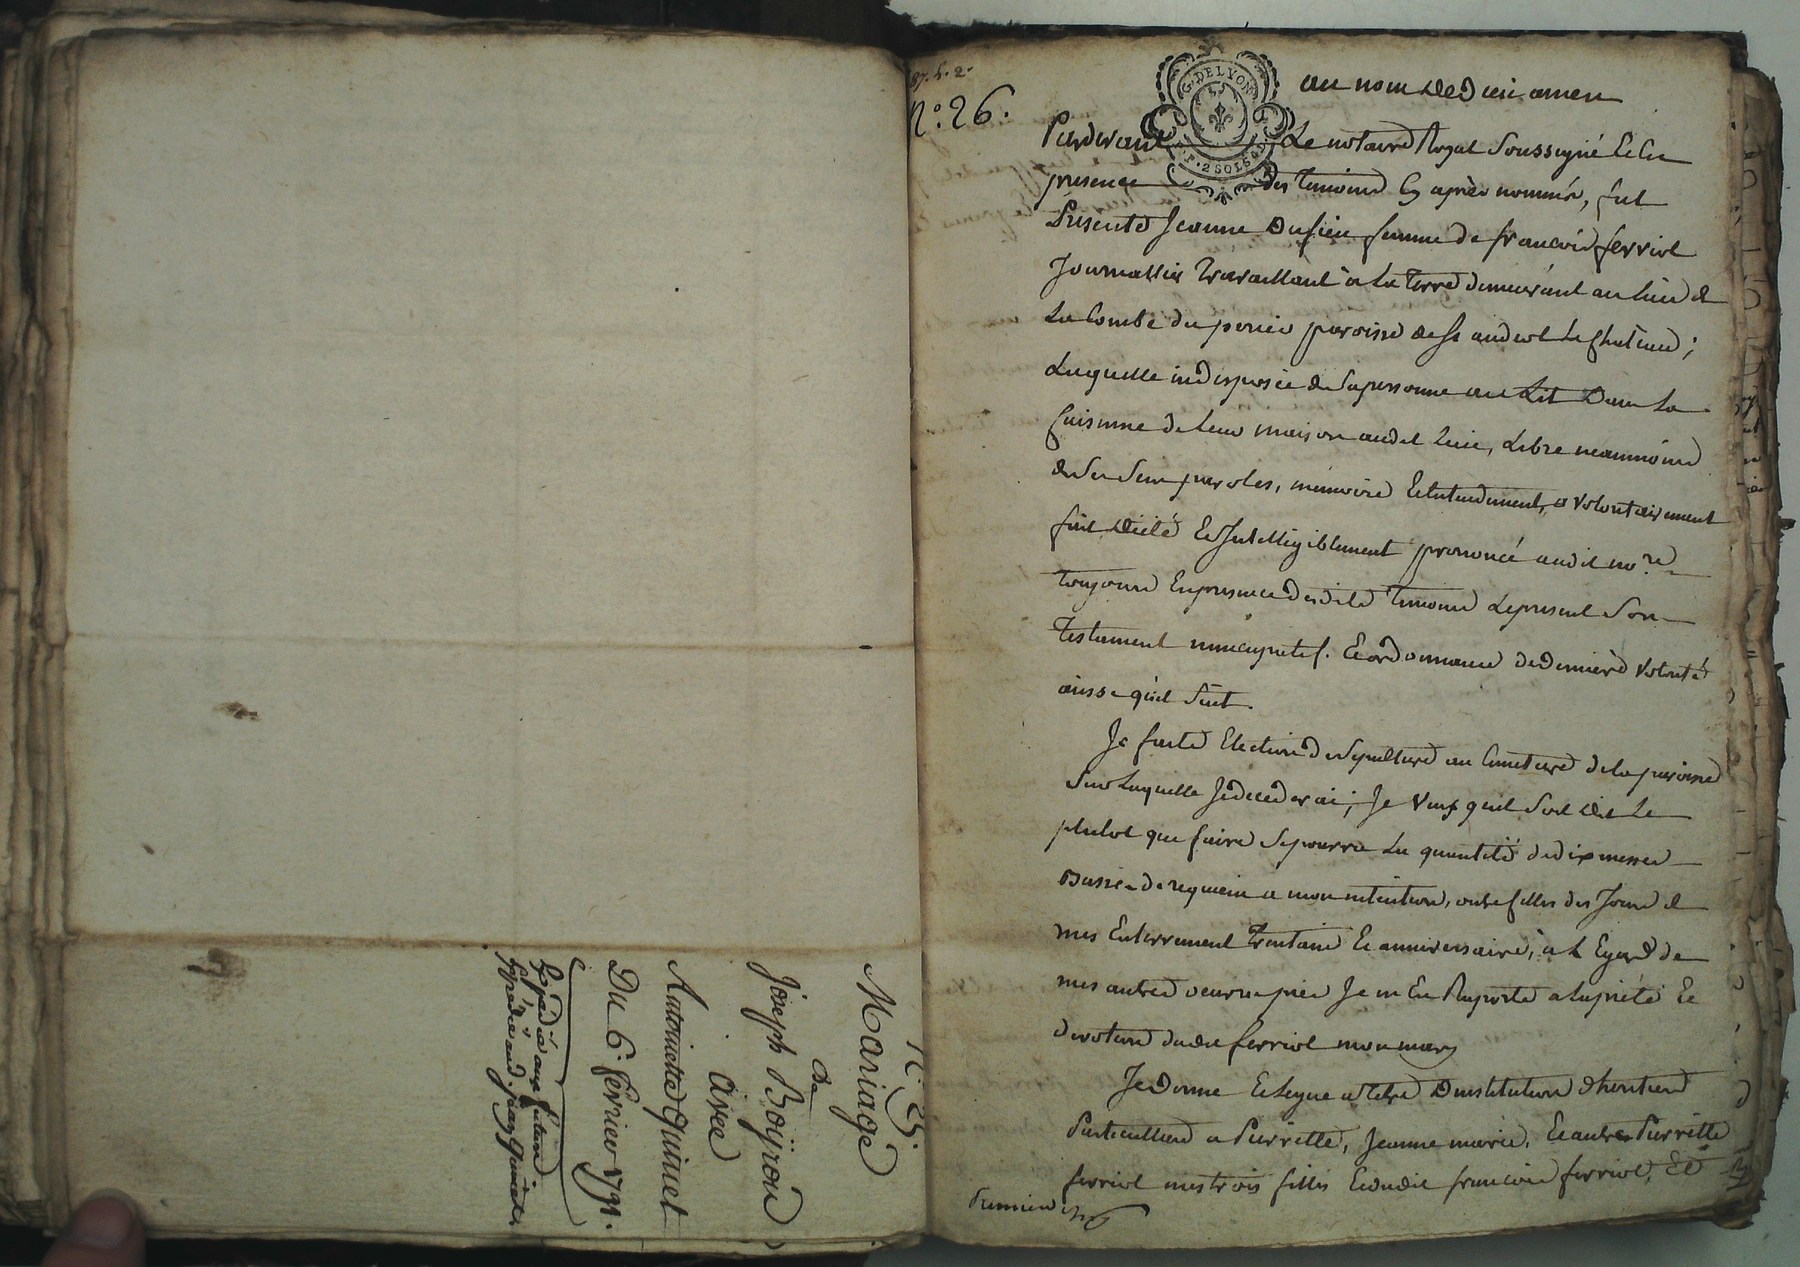 N.° 25.
Mariage
De
Joseph Boijron
avec
Antoinette Quinet
Du 6. fevrier 1791.
Exped.é aux futurs
Expediée aud. Jean Quinet
87. h. 2.
N.° 26.
G. DE LYON
2 SOLS
au nom de Dieu amen
Pardevant Le notaire Royal Soussigné Et En
presence des temoins Cy après nommés, fut
Presente Jeanne Dufieu femme de francois ferriol
Journallier travaillant à La terre demeurant au lieu de
La Combe du perier paroisse de St andeol Le Chateau;
Laquelle indisposée de Sa personne au Lit Dans La
Cuisinne de Leur maison audit lieu, Libre neanmoins
de Ses Sens paroles, memoire Et Entendement, a volontairement
fait dicté Et Intelligiblement prononcé audit no.re
toujours En presence desdits temoins Le present Son
Testament nuncupatif. Et ordonnance de derniere Volonté
ainsse qu'il Suit.
Je faits Election de Sepulture au Cimetiere de la paroisse
Sur Laquelle Je decederai; Je veux qu'il Soit dit Le
plutot que faire Se pourra La quantité de dix messes
Basses de requiem a mon intention, outre Celles des Jours de
mes Enterrement trentaine Et anniversaire, à L'Egard de
mes autres oeuvres pies Je m'En Raporte a la pieté Et
devotion dudit ferriol mon mary
Je Donne Et Legue a titre D'institution d'heritiers
Particulliers a Pierrette, Jeanne marie, Et autre Pierrette
ferriol mes trois filles Et dudit francois ferriol, Et
Premier